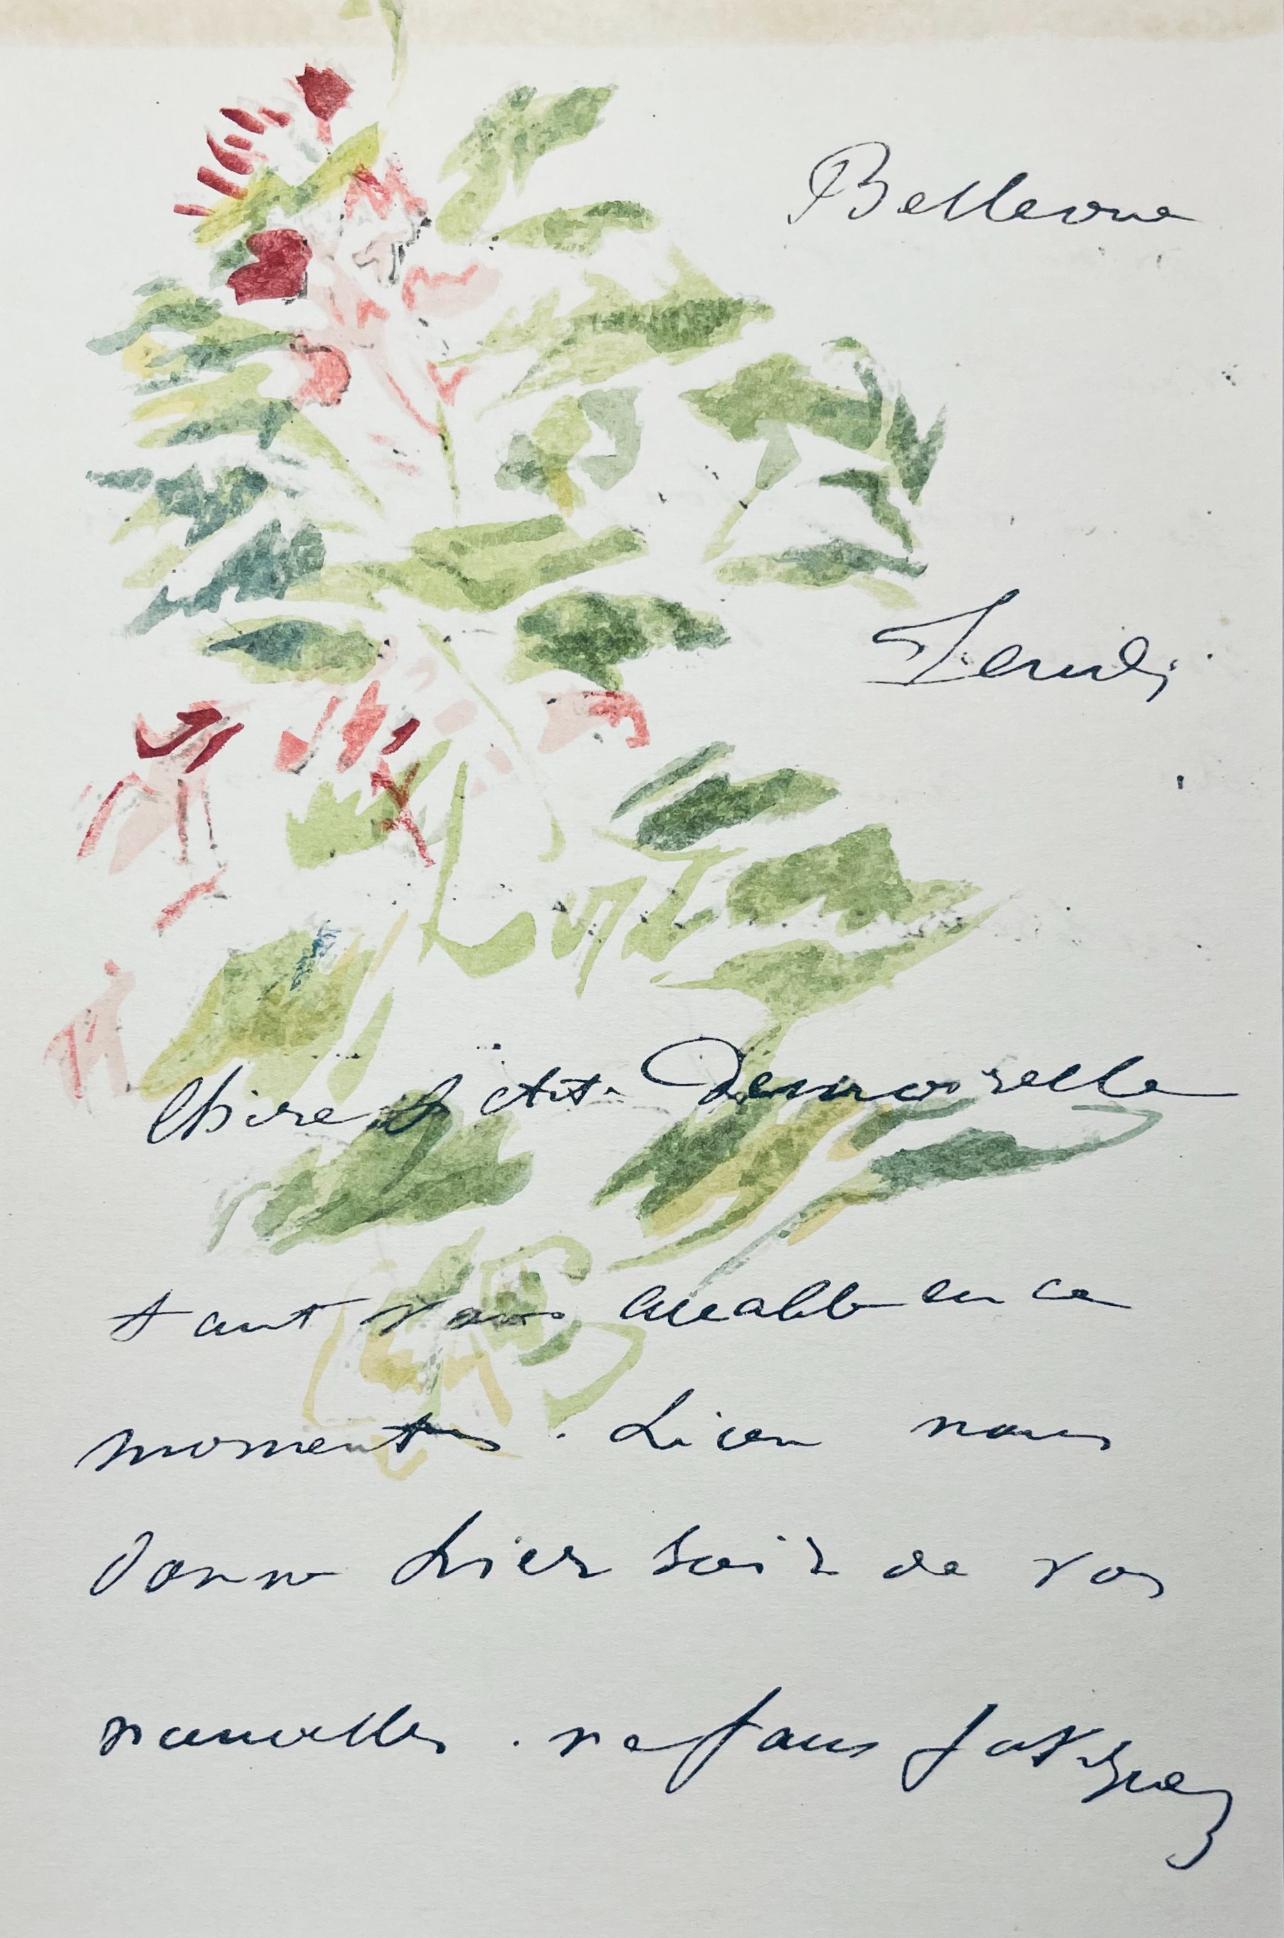 Bellevue
Jeudi
Chère petite Demoiselle
tant vous accable en ce
moment . nous
donne hier soir de vos
nouvelles . ne fatiguez